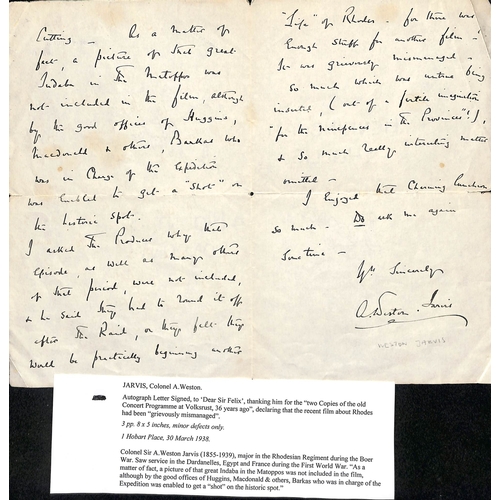 Cutting – As a matter of
fact, a picture of that great
Indaba in The Matoppos was
not included in the film, although
by the good offices of Huggins,
Macdonald & others, Barkas who
was in Charge of the Expedition
was enabled to get a "shot" on
the historic spot.
I asked The Producer why that
Episode, as well as many others
of that period, were not included,
& he said They had to round it off
after The Raid, or they felt they
would be practically beginning another
"Life" of Rhodes – for there was
Enough stuff for another film –
It was grievously mismanaged –
So much which was untrue being
inserted, (out of a fertile imagination
"for the ninepences in The Provinces"!),
& so much really interesting matter
omitted –
I Enjoyed that Charming luncheon
so much – Do ask me again
Sometime –
Yrs Sincerely
A. Weston Jarvis
WESTON JARVIS
JARVIS, Colonel A.Weston.
Autograph Letter Signed, to 'Dear Sir Felix', thanking him for the "two Copies of the old
Concert Programme at Volksrust, 36 years ago", declaring that the recent film about "Rhodes
had been "grievously mismanaged".
3 pp. 8 x 5 inches, minor defects only.
1 Hobart Place, 30 March 1938.
Colonel Sir A.Weston Jarvis (1855-1939), major in the Rhodesian Regiment during the Boer
War. Saw service in the Dardanelles, Egypt and France during the First World War. "As a
matter of fact, a picture of that great Indaba in the Matoppos was not included in the film,
although by the good offices of Huggins, Macdonald & others, Barkas who was in charge of the
Expedition was enabled to get a "shot" on the historic spot."